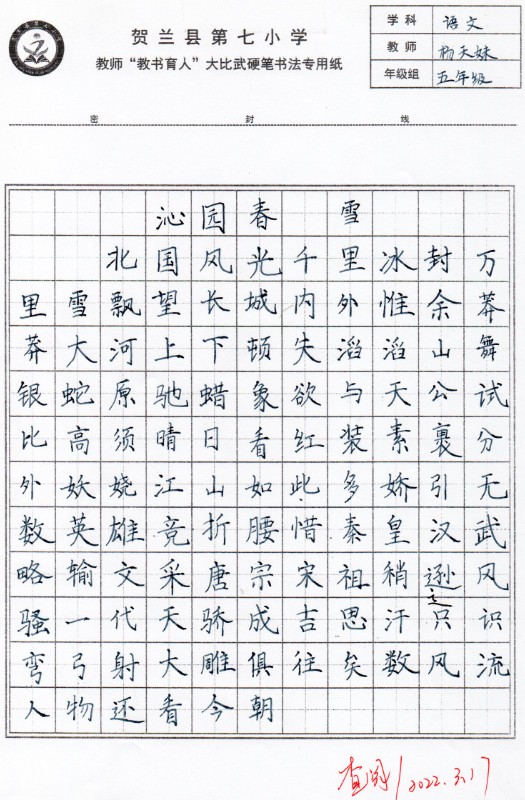 贺兰县第七小学
教师“教书育人”大比武硬笔书法专用纸
学科 语文
教师 杨天妹
年级组 五年级
密 封 线
沁园春 雪
北国风光千里冰封万
里雪飘望长城内外惟余莽
莽大河上下顿失滔滔山舞
银蛇原驰蜡象欲与天公试
比高须晴日看红装素裹分
外妖娆江山如此多娇引无
数英雄竞折腰惜秦皇汉武
略输文采唐宗宋祖稍逊风
骚一代天骄成吉思汗只识
弯弓射大雕俱往矣数风流
人物还看今朝
2022.3.17